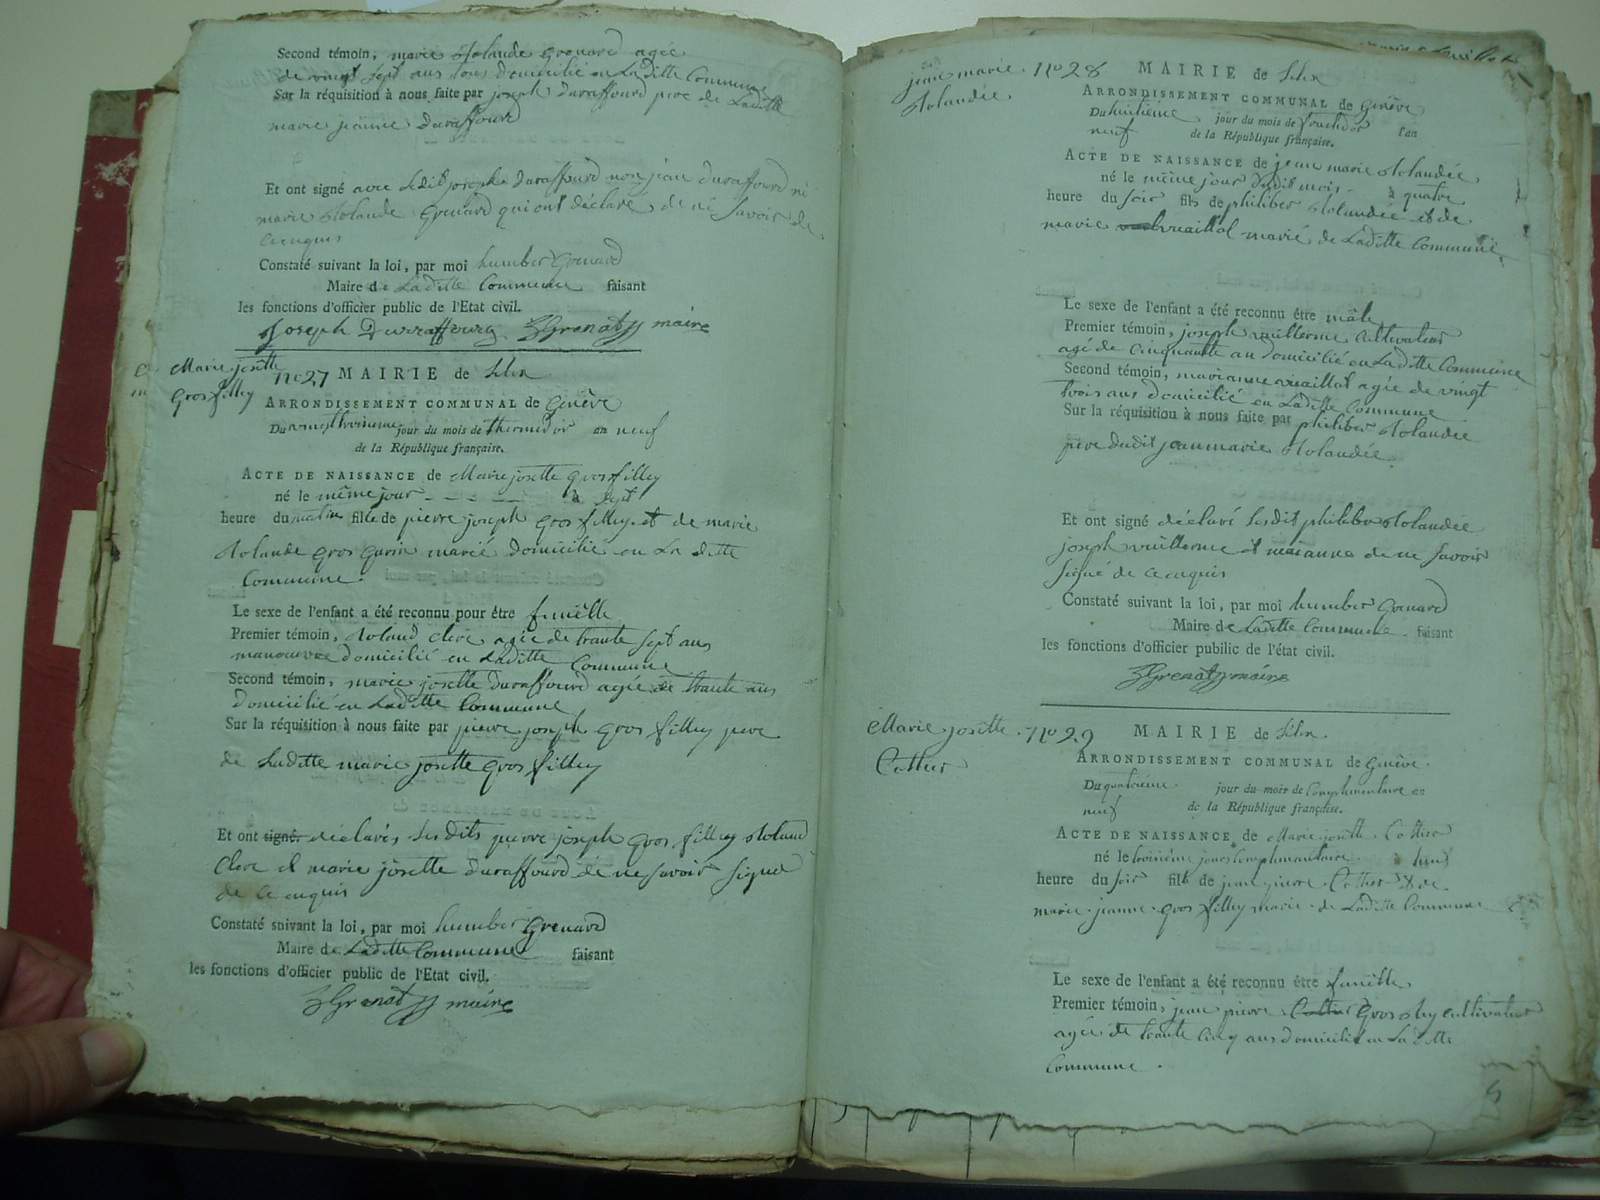 Second témoin, marie Rolande grenard agée
de vingt sept ans tous domicilié en Laditte Commune
Sur la réquisition à nous faite par joseph duraffourd pere de Laditte
marie jeanne duraffourd
Et ont signé avec Ledit joseph duraffourd non jean duraffourd ni
marie Rolande grenard qui ont déclaré de ne savoir de
ce enquis
Constaté suivant la loi, par moi humber Grenard
Maire de Laditte Commune faisant
les fonctions d'officier public de l'Etat civil.
Joseph Durraffourg Grenat maire
Marie josette
gros filley
no 27 MAIRIE de
ARRONDISSEMENT COMMUNAL de Genêve
Du vingt troisieme jour du mois de thermidor an neuf
de la République française.
ACTE DE NAISSANCE de Marie josette gros filley
né le même jour à sept
heure du matin fille de pierre joseph gros filley et de marie
Rolande gros gurin marié domicilié en La ditte
Commune.
Le sexe de l'enfant a été reconnu pour être femelle
Premier témoin, Roland clerc agée de trante sept ans
manoeuvre domicilié en Laditte Commune
Second témoin, marie josette duraffourd agée de trante ans
domicilié en Laditte Commune
Sur la réquisition à nous faite par pierre joseph gros filley pere
de Laditte marie josette gros filley
Et ont signé. déclarés Les dits pierre joseph gros filley Roland
Clerc et marie josette duraffourd de ne savoir signé
de ce enquis
Constaté suivant la loi, par moi humber Grenard
Maire de Laditte Commune faisant
les fonctions d'officier public de l'Etat civil.
Grenat maire
jean marie
Rolandée
no 28 MAIRIE de
ARRONDISSEMENT COMMUNAL de Genêve
Du huitième jour du mois de fructidor l'an
neuf de la République française.
ACTE DE NAISSANCE de jean marie Rolandée
né le même jour dudit mois à quatre
heure du soir fils de philiber Rolandée et de
marie vuaillat marié de Laditte Commune
Le sexe de l'enfant a été reconnu être mâle
Premier témoin, joseph vuillerme cultivateur
agé de cinquante an domicilié en Laditte Commune
Second témoin, marianne vuaillat agée de vingt
trois ans domicilié en Laditte Commune
Sur la réquisition à nous faite par philiber Rolandée
père dudit jean marie Rolandée
Et ont signé déclaré Lesdit philiber Rolandée
joseph vuillerme et marianne de ne savoir
signé de ce enquis
Constaté suivant la loi, par moi humber Grenard
Maire de Laditte Commune faisant
les fonctions d'officier public de l'état civil.
Grenat maire
Marie josette
Cottier
no 29 MAIRIE de
ARRONDISSEMENT COMMUNAL de Genêve
Du quatrieme jour du mois de Complimentaire an
neuf de la République française.
ACTE DE NAISSANCE de Marie josette Cottier
né le troisième jour Complimantaire à
heure du soir fille de jean pierre Cottier & de
marie jeanne gros filley marié de Laditte Commune
Le sexe de l'enfant a été reconnu être femelle
Premier témoin, jean pierre gros cultivateur
agée de trante cinq ans domicilié en Laditte
Commune.